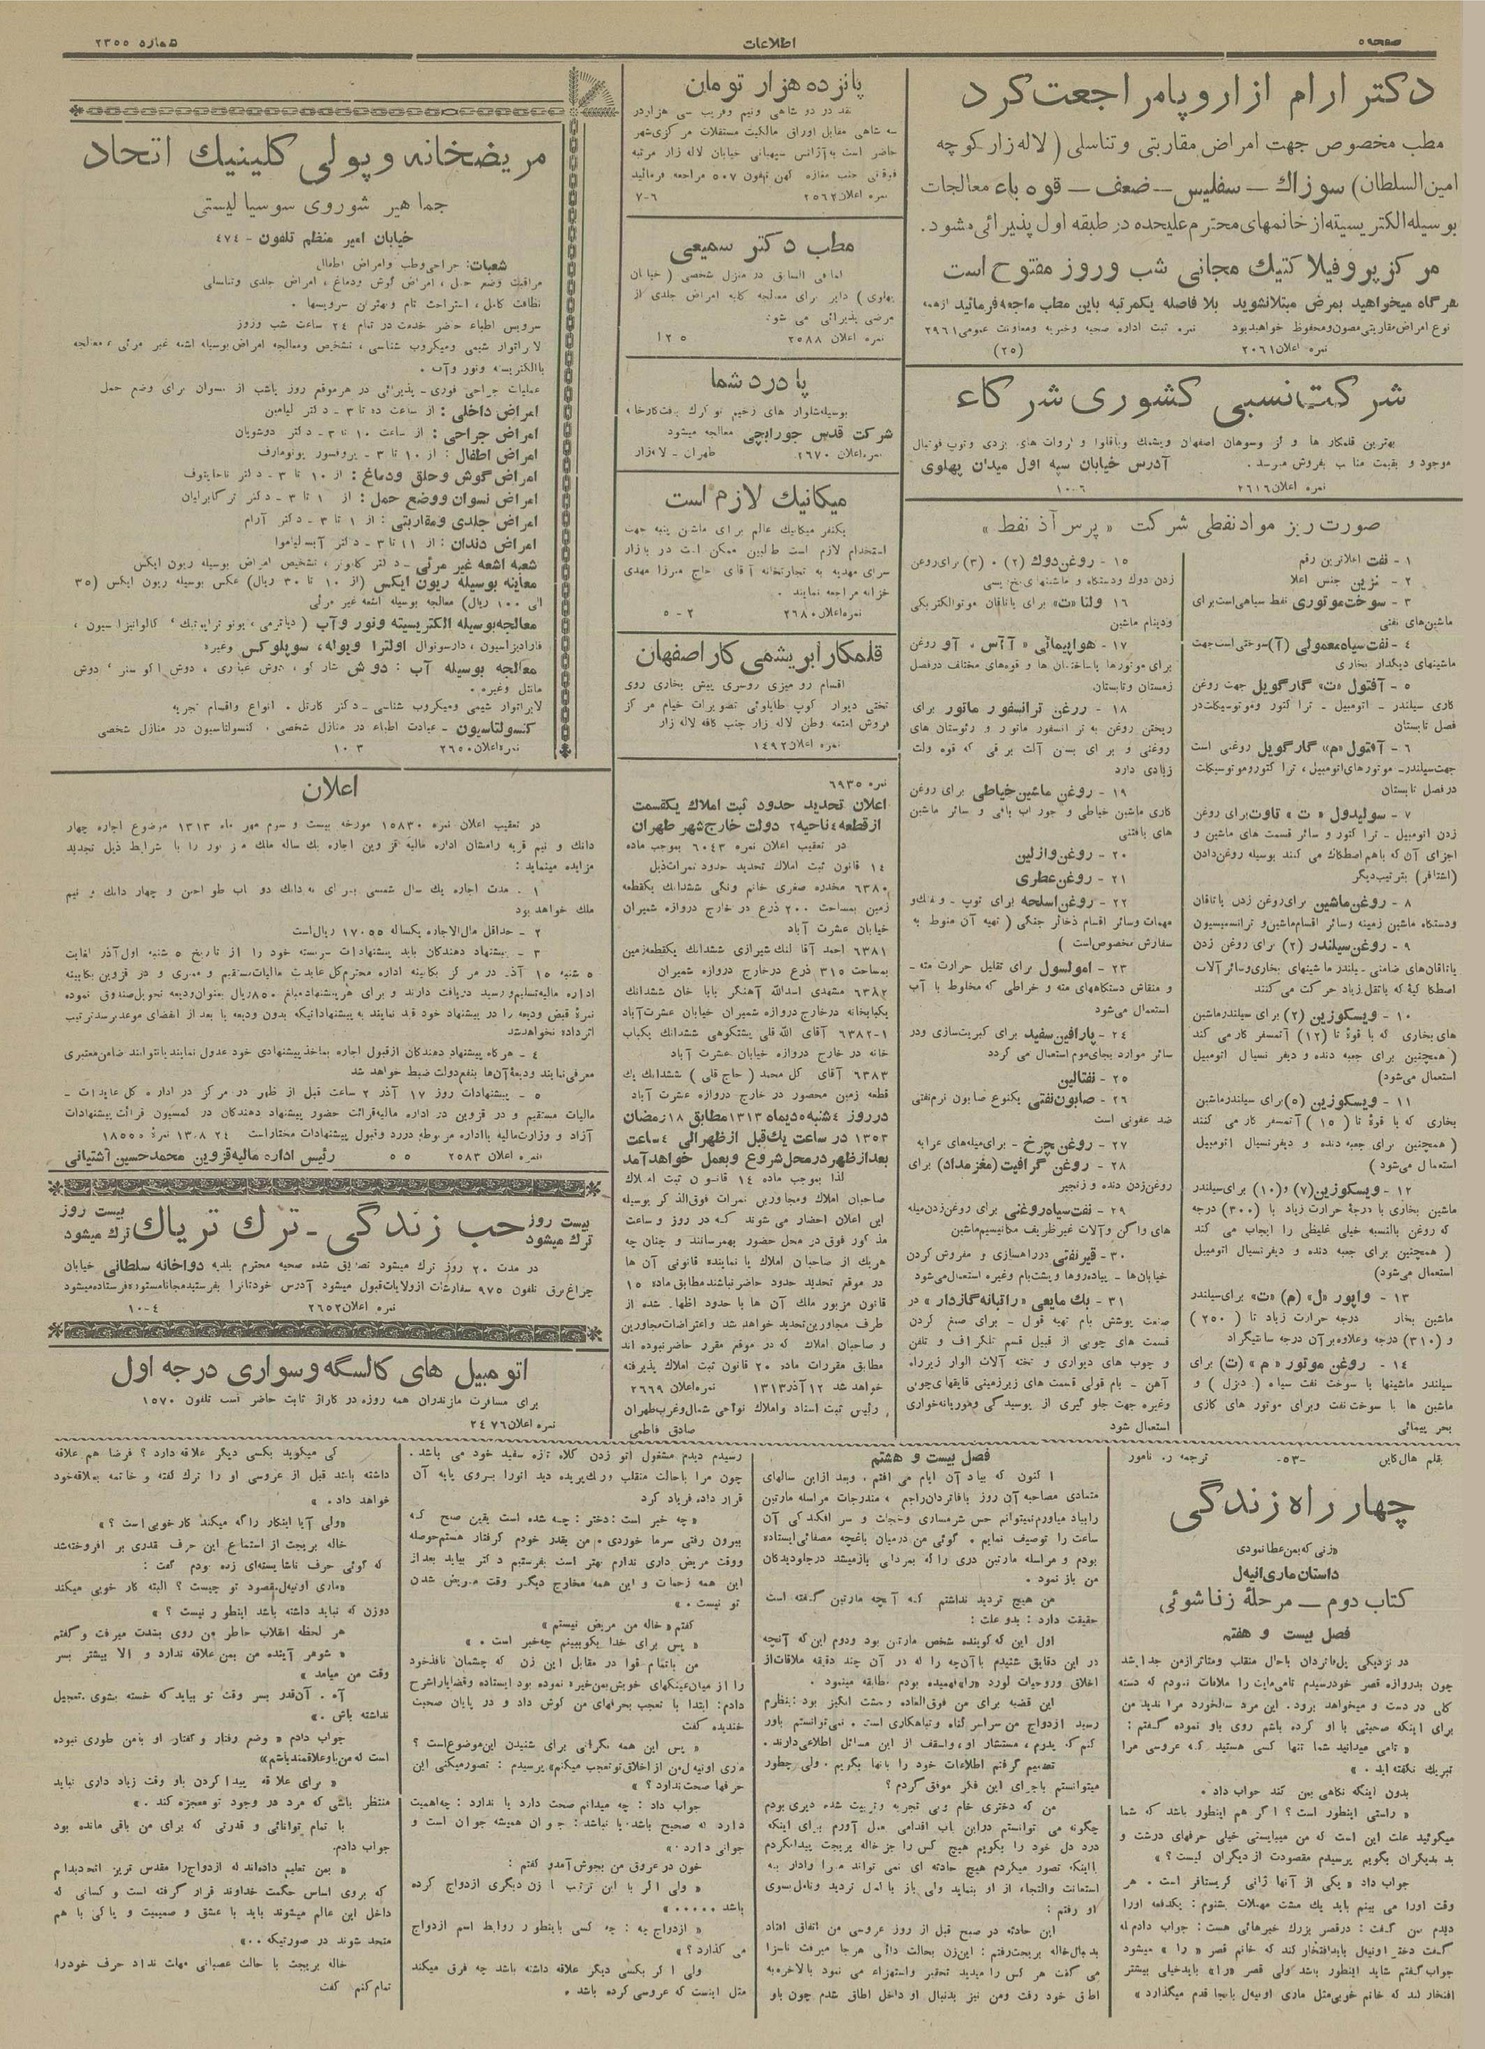 صفحه ۵
اطلاعات
شماره ۲۳۵۵
دکتر ارام از اروپا مراجعت کرد
مطب مخصوص جهت امراض مقاربتی و تناسلی (لاله زار کوچه
امین السلطان) سوزاك ــ سفلیس ــ ضعف ــ قوه باء معالجات
بوسیله الکتریسیته از خانمهای محترم علیحده در طبقه اول پذیرائی میشود.
مرکز پروفیلاکتیك مجانی شب و روز مفتوح است
هرگاه میخواهید بمرض مبتلا نشوید بلا فاصله یکمرتبه باین مطب مراجعه فرمائید از همه
نوع امراض مقاربتی مصون و محفوظ خواهید بود نمره ثبت اداره صحیه و خیریه و معاونت عمومی ۲۹۶۱
نمره اعلان ۲۰۶۱ (۲۵)
شرکت نسبی کشوری شرکاء
موجود و بقیمت مناسب بفروش میرسد. آدرس خیابان سپه اول میدان پهلوی
نمره اعلان ۲۶۱۶ ۱۰-۶
صورت ریز مواد نفطی شرکت « پرس آذ نفط »
۱ - نفت اعلاترین رقم
۲ - بنزین جنس اعلا
۳ - سوخت موتوری نفط سیاهی است برای
ماشین‌های نفتی
۴ - نفت سیاه معمولی (آ) سوختی است جهت
ماشینهای دیگدار بخاری
۵ - آفتول «ت» گارگویل جهت روغن
کاری سیلندر - اتومبیل - تراکتور و موتوسیکلت در
فصل تابستان
۶ - آفتول «م» گارگویل روغنی است
جهت سیلندر - موتورهای اتومبیل، تراکتور و موتوسیکلت
در فصل تابستان
۷ - سولیدول « ت » تاوت برای روغن
زدن اتومبیل - تراکتور و سائر قسمت های ماشین و
اجزای آن که باهم اصطکاك می کنند بوسیله روغن‌دان
(اشتافر) بترتیب دیگر
۸ - روغن ماشین برای روغن زدن یاتاقان
و دستگاه ماشین زمینه و سائر اقسام ماشین و ترانسمیسیون
۹ - روغن سیلندر (۲) برای روغن زدن
یاتاقان‌های ضامنی - سیلندر ماشینهای بخاری و سائر آلات
اصطکاکیه که با ثقل زیاد حرکت می کنند
۱۰ - ویسکوزین (۲) برای سیلندر ماشین
های بخاری که با قوة تا (۱۲) آتمسفر کار می کند
( همچنین برای جعبه دنده و دیفرنسیال اتومبیل
استعمال می‌شود)
۱۱ - ویسکوزین (۵) برای سیلندر ماشین
بخاری که با قوة تا (۱۵) آتمسفر کار می کنند
( همچنین برای جعبه دنده و دیفرنسیال اتومبیل
استعمال می‌شود )
۱۲ - ویسکوزین (۷) و (۱۰) برای سیلندر
ماشین بخاری با درجه حرارت زیاد با (۳۰۰) درجه
که روغن بالنسبه خیلی غلیظی را ایجاب می کند
( همچنین برای جعبه دنده و دیفرنسیال اتومبیل
استعمال می‌شود)
۱۳ - واپور «ل» (م) «ت» برای سیلندر
ماشین بخار درجه حرارت زیاد تا (۲۵۰)
و (۳۱۰) درجه و علاوه بر آن درجه سانتیگراد
۱۴ - روغن موتور « م » (ت) برای
سیلندر ماشینها با سوخت نفت سیاه (دیزل) و
ماشین ها با سوخت نفت و برای موتور های گازی
بحر پیمائی
۱۵ - روغن دوك (۲) ، (۳) برای روغن
زدن دوك و دستگاه و ماشینهای نخ ریسی
۱۶ ولتا «ت» برای یاتاقان موتو الکتریکی
و دینام ماشین
۱۷ - هواپیمائی « آ آس ، آو روغن
برای موتورها با ساختمان ها و قوه‌های مختلف در فصل
زمستان و تابستان.
۱۸ - روغن ترانسفور ماتور برای
ریختن روغن به ترانسفور ماتور و رئوستان های
روغنی و برای بستن آلت برقی که قوه ولت
زیادی دارد
۱۹ - روغن ماشین خیاطی برای روغن
کاری ماشین خیاطی و جوراب بافی و سائر ماشین
های بافتنی
۲۰ - روغن وازلین
۲۱ - روغن عطری
۲۲ - روغن اسلحه برای توپ - و تفنك و
مهمات و سائر اقسام ذخائر جنگی ( تهیه آن منوط به
سفارش مخصوص است )
۲۳ - امولسول برای تقلیل حرارت مته -
و منقاش دستگاههای مته و خراطی که مخلوط با آب
استعمال می‌شود
۲۴ - پارافین سفید برای کبریت‌سازی و در
سائر موارد بجای موم استعمال می گردد
۲۵ - نفتالین
۲۶ - صابون نفتی یکنوع صابون نرم نفتی
ضد عفونی است
۲۷ - روغن چرخ - برای میله‌های عرابه
۲۸ - روغن گرافیت (مغز مداد) برای
روغن زدن دنده و زنجیر
۲۹ - نفت سیاه روغنی برای روغن زدن میله
های واگن و آلات غیر ظریف مکانیسم ماشین
۳۰ - قیر نفتی در راهسازی و مفروش کردن
خیابان‌ها - پیاده‌روها و پشت‌بام و غیره استعمال می‌شود
۳۱ - یك مایعی « راتبانه گازدار » در
صنعت پوشش بام تهیه قول - برای صمغ کردن
قسمت های چوبی از قبیل قسم تلگراف و تلفن
و چوب های دیواری و تخته آلات الوار زیر راه
آهن - بام قولی قسمت های زیرزمینی قایقهای چوبی
وغیره جهت جلوگیری از پوسیدگی و موریانه‌خواری
استعمال شود
پانزده هزار تومان
نقد در دو شاهی و نیم و قریب سی هزار در
سه شاهی مقابل اوراق مالکیت مستقلات مرکزی شهر
حاضر است به آژانس سپهبانی خیابان لاله زار مرتبه
فوقانی جنب مغازه کهن تلفون ۵۰۷ مراجعه فرمائید
نمره اعلان ۲۵۶۲ ۷-۶
مطب دکتر سمیعی
کمافی السابق در منزل شخصی (خیابان
پهلوی) دایر برای معالجه کلیه امراض جلدی از
مرضی پذیرائی می شود
نمره اعلان ۲۵۸۸
پا درد شما
بوسیله شلوار های زخیم نو کرك بافت کارخانه
شرکت قدس جورابچی معالجه میشود
نمره اعلان ۲۶۷۰ طهران - لاله‌زار
میکانیك لازم است
یکنفر میکانیك عالم برای ماشین پنبه جهت
استخدام لازم است طالبین ممکن است در بازار
سرای مهدیه به تجارتخانه آقای حاج میرزا مهدی
خزانه مراجعه نمایند .
نمره اعلان ۲۶۸۰ ۲ - ۵
قلمکار ابریشمی کار اصفهان
اقسام رومیزی روسری پیش بخاری روی
تختی دیوار کوب طابلوئی تصویرات خیام مرکز
فروش امتعه وطن لاله زار جنب کافه لاله زار
نمره اعلان ۱۴۹۲
نمره ۶۹۳۵
اعلان تحدید حدود ثبت املاك یکقسمت
از قطعه ۴ ناحیه ۲ دولت خارج شهر طهران
در تعقیب اعلان نمره ۶۰۴۳ بموجب ماده
۱۴ قانون ثبت املاك تحدید حدود نمرات ذیل
۶۳۸۰ مخدره صغری خانم ونکی ششدانك یکقطعه
زمین بمساحت ۲۰۰ ذرع در خارج دروازه شمیران
خیابان عشرت آباد
۶۳۸۱ احمد آقا لنك شیرازی ششدانك یکقطعه زمین
بمساحت ۳۱۵ ذرع در خارج دروازه شمیران
۶۳۸۲ مشهدی اسدالله آهنگر بابا خان ششدانك
یکبابخانه در خارج دروازه شمیران خیابان عشرت آباد
۶۳۸۲-۱ آقای الله قلی پشتکوهی ششدانك یکباب
خانه در خارج دروازه خیابان عشرت آباد
۶۳۸۳ آقای کل محمد (حاج قلی) ششدانك یك
قطعه زمین محصور در خارج دروازه عشرت آباد
در روز ۴ شنبه ۵ دیماه ۱۳۱۳ مطابق ۱۸ رمضان
۱۳۵۳ در ساعت یك قبل از ظهر الی ۴ ساعت
بعد از ظهر در محل شروع و بعمل خواهد آمد
لذا بموجب ماده ۱۴ قانون ثبت املاك
صاحبان املاك و مجاورین نمرات فوق الذکر بوسیله
این اعلان احضار می شوند که در روز و ساعت
مذکور فوق در محل حضور بهمرسانند و چنان چه
هریك از صاحبان املاك یا نماینده قانونی آن ها
در موقع تحدید حدود حاضر نباشند مطابق ماده ۱۵
قانون مزبور ملك آن ها با حدود اظهار شده از
طرف مجاورین تحدید خواهد شد و اعتراضات مجاورین
و صاحبان املاك که در موقع مقرر حاضر نبوده اند
مطابق مقررات ماده ۲۰ قانون ثبت املاك پذیرفته
خواهد شد ۱۲ آذر ۱۳۱۳ نمره اعلان ۲۶۶۹
رئیس ثبت اسناد و املاك نواحی شمال و غرب طهران
صادق فاطمی
مریضخانه و پولی کلینیك اتحاد
جماهیر شوروی سوسیالیستی
خیابان امیر منظم تلفون - ۴۷۴
شعبات: جراحی و طب و امراض اطفال
مراقبت وضع حمل ، امراض گوش و دماغ ، امراض جلدی و تناسلی
نظافت کامل ، استراحت تام و بهترین سرویسها .
سرویس اطباء حاضر خدمت در تمام ۲۴ ساعت شب و روز
لابراتوار شیمی و میکروب شناسی ، تشخیص و معالجه امراض بوسیله اشعه غیر مرئی ، معالجه
با الکتریسیته و نور و آب .
عملیات جراحی فوری - پذیرائی در هر موقع روز یاشب از نسوان برای وضع حمل
امراض داخلی : از ساعت ده تا ۳ - دکتر لیامین
امراض جراحی : از ساعت ۱۰ تا ۳ - دکتر دوشویان
امراض اطفال : از ۱۰ تا ۳ - پروفسور یونومارف
امراض گوش و حلق و دماغ : از ۱۰ تا ۳ - دکتر ناخایتوف
امراض نسوان و وضع حمل : از ۱ تا ۳ - دکتر ترگابرایان
امراض جلدی و مقاربتی : از ۱ تا ۳ - دکتر آرام
امراض دندان : از ۱۱ تا ۳ - دکتر آبسلیاموا
معاینه بوسیله ریون ایکس (از ۱۰ تا ۳۰ ریال) عکس بوسیله ریون ایکس (۳۵
الی ۱۰۰ ریال) معالجه بوسیله اشعه غیر مرئی
معالجه بوسیله الکتریسیته و نور و آب ( دیاترمی ، یونوتراپوتیك ، گالوانیزاسیون ،
فارادیزاسیون ، دارسونوال اولترا ویوله، سوپلوکس وغیره
مانتل و غیره .
لابراتوار شیمی و میکروب شناسی - دکتر کارتل . انواع و اقسام تجزیه
کنسولتاسیون - عیادت اطباء در منازل شخصی ، کنسولتاسیون در منازل شخصی
نمره اعلان ۲۶۵۰ ۳-۱۰
اعلان
در تعقیب اعلان نمره ۱۵۸۳۰ مورخه بیست و سوم مهر ماه ۱۳۱۳ موضوع اجاره چهار
دانك و نیم قریه رامستان اداره مالیه قزوین اجاره یك ساله ملك مزبور را با شرایط ذیل تجدید
مزایده مینماید :
۱ . مدت اجاره یك سال شمسی برای سه دانك دو آب طواحن و چهار دانك و نیم
ملك خواهد بود
۲ - حداقل مال‌الاجاره یکساله ۱۷۰۵۵ ریال است
۳ - پیشنهاد دهندگان باید پیشنهادات سربسته خود را از تاریخ ۵ شنبه اول آذر لغایت
۵ شنبه ۱۵ آذر در مرکز بکابینه اداره محترم کل عایدات مالیات مستقیم و ممیزی و در قزوین بکابینه
اداره مالیه تسلیم و رسید دریافت دارند و برای هر پیشنهاد مبلغ ۸۵۰ ریال بعنوان ودیعه تحویل صندوق نموده
نمرة قبض ودیعه را در پیشنهاد خود قید نمایند به پیشنهاداتیکه بدون ودیعه یا بعد از انقضای موعد برسد ترتیب
اثر داده نخواهد شد
۴ - هرگاه پیشنهاد دهندگان از قبول اجاره بماخذ پیشنهادی خود عدول نمایند یا نتوانند ضامن معتبری
معرفی نمایند ودیعه آن‌ها بنفع دولت ضبط خواهد شد
۵ - پیشنهادات روز ۱۷ آذر ۲ ساعت قبل از ظهر در مرکز در اداره کل عایدات -
مالیات مستقیم و در قزوین در اداره مالیه قرائت حضور پیشنهاد دهندگان در کمسیون قرائت پیشنهادات
آزاد و وزارت مالیه یا اداره مربوطه در رد و قبول پیشنهادات مختار است ۲۴ ۱۳۰۸ نمرة ۱۸۵۵۵
نمره اعلان ۲۵۸۳ ۵ ۵ رئیس اداره مالیه قزوین محمد حسین آشتیانی
بیست روز ترك میشود
حب زندگی - ترك تریاك
بیست روز ترك میشود
در مدت ۲۰ روز ترك میشود تصدیق شده صحیه محترم بلدیه دواخانه سلطانی خیابان
چراغ برق تلفون ۹۷۵ سفارشات از ولایات قبول میشود آدرس خودتانرا بفرستید مجانا مستوره فرستاده میشود
نمره اعلان ۲۶۵۲ ۱۰-۴
اتومبیل های کالسگه و سواری درجه اول
برای مسافرت مازندران همه روزه در گاراژ ثابت حاضر است تلفون ۱۵۷۰
نمره اعلان ۲۴۷۶
بقلم هال‌کاین -۵۳- ترجمه ر. نامور
چهار راه زندگی
«زنی که بمن عطا نمودی
داستان ماری انیه‌ل
کتاب دوم ــ مرحلة زناشوئی
فصل بیست و هفتم
در نزدیکی پل ماتردان باحال منقلب و متاثر از من جدا شد
چون بدروازه قصر خود رسیدم تامی‌مایت را ملاقات نمودم که دسته
گلی در دست و میخواهد برود. این مرد سالخورد مرا ندید من
برای اینکه صحبتی با او کرده باشم روی باو نموده گفتم :
« تامی میدانید شما تنها کسی هستید که عروسی مرا
تبریك نگفته اید . »
بدون اینکه نگاهی بمن کند جواب داد .
« راستی اینطور است ؟ اگر هم اینطور باشد که شما
میگوئید علت این است که من میبایستی خیلی حرفهای درشت و
بد بدیگران بگویم پرسیدم مقصودت از دیگران کیست ؟ »
جواب داد « یکی از آنها ژانی کریستافر است . هر
وقت اورا می بینم باید یك مشت مهملات بشنوم : یکدفعه اورا
دیدم من گفت : درقصر بزرك خبرهائی هست : جواب دادم له
گفت دختر اونیه‌ل باید افتخار کند که خانم قصر « را » میشود
جواب گفتم شاید اینطور باشد ولی قصر «را» باید خیلی بیشتر
افتخار کند که خانم خوبی مثل ماری اونیه‌ل باینجا قدم میگذارد »
فصل بیست و هشتم
ا کنون که بیاد آن ایام می افتم ، وبعد از این سالهای
متمادی مصاحبه آن روز با فاتردان راجع به مندرجات مراسله مارتین
را بیاد میاورم نمیتوانم حس شرمساری وخجلت و سر افکندگی آن
ساعت را توصیف نمایم . گوئی من درمیان باغچه مصفائی ایستاده
بودم و مراسله مارتین دری را که بمردابی باز میشد در جلو دیدگان
من باز نمود .
من هیچ تردید نداشتم که آنچه مارتین گفته است
حقیقت دارد : بدو علت :
اول این که گوینده شخص مارتین بود و دوم این که آنچه
در این دقایق شنیدم با آن چه را که در آن چند دقیقه ملاقات از
اخلاق و روحیات لورد «را» فهمیده بودم مطابقه مینمود .
این قضیه برای من فوق العاده وحشت انگیز بود : بنظرم
رسید ازدواج من سراسر گناه و تباهکاری است . نمی‌توانستم باور
کنم که پدرم ، مستشار او، واسقف از این مسائل اطلاعی دارند.
تصمیم گرفتم اطلاعات خود را بانها بگویم . ولی چطور
میتوانستم باجرای این فکر موفق گردم ؟
من که دختری خام وبی تجربه و تربیت شده دیری بودم
چگونه می توانستم دراین باب اقدامی بعمل آورم برای اینکه
درد دل خود را بگویم هیچ کس را جز خاله بریجت پیدا نکردم
با اینکه تصور میکردم هیچ حادثه ای نمی تواند مرا وادار به
استعانت والتجاء از او بنماید ولی باز با کمال تردید و تامل بسوی
او رفتم :
این حادثه در صبح قبل از روز عروسی من اتفاق افتاد
بدنبال خاله بریجت رفتم : این‌زن بحالت دائمی هرجا میرفت ناسزا
می گفت هر کس را میدید تحقیر واستهزاء می نمود بالاخره به
اطاق خود رفت ومن نیز بدنبال او داخل اطاق شدم چون باو
رسیدم دیدم مشغول اتو زدن کلاه تازه سفید خود می باشد .
چون مرا باحالت منقلب و رنك پریده دید اتورا بروی پایه آن
قرار داده فریاد کرد
« چه خبر است : دختر : چه شده است یقین صبح که
بیرون رفتی سرما خوردی ، من بقدر خودم گرفتار هستم حوصله
ووقت مریض داری ندارم بهتر است بفرستیم دکتر بیاید بعد از
این همه زحمات و این همه مخارج دیگر وقت مریض شدن
تو نیست . »
گفتم « خاله من مریض نیستم »
« پس برای خدا بگوببینم چه خبر است . »
من باتمام قوا در مقابل این زن که چشمان نافذ خود
را از میان عینکهای خویش بمن خیره نموده بود ایستاده وقضایارا شرح
دادم : ابتدا با تعجب بحرفهای من گوش داد و در پایان صحبت
خندیده گفت
« پس این همه نگرانی برای شنیدن این موضوع است ؟
ماری اونیه‌ل من از اخلاق توتعجب میکنم» پرسیدم : تصور میکنی این
حرفها صحت ندارد ؟ »
جواب داد : چه میدانم صحت دارد یا ندارد : چه اهمیت
دارد که صحیح باشد، یا نباشد : جوان همیشه جوان است و
جوانی دارد . »
خون در عروق من بجوش آمد و گفتم :
« ولی اگر با این ترتیب با زن دیگری ازدواج کرده
باشد ..... »
« ازدواج چه : چه کسی باینطور روابط اسم ازدواج
می گذارد ؟ »
ولی اگر بکسی دیگر علاقه داشته باشد چه فرق میکند
مثل اینست که عروسی کرده باشد .
کی میگوید بکسی دیگر علاقه دارد ؟ فرضا هم علاقه
داشته باشد قبل از عروسی او را ترك گفته و خاتمه بعلاقه‌خود
خواهد داد . »
«ولی آیا اینکار را که میکند کار خوبی است ؟ »
خاله بریجت از استماع این حرف قدری بر افروخته شد
که گوئی حرف ناشایسته‌ای زده بودم گفت :
«ماری اونیه‌ل مقصود تو چیست ؟ البته کار خوبی میکند
دوزن که نباید داشته باشد اینطور نیست ؟ »
هر لحظه انقلاب خاطر من روی بشدت میرفت و گفتم
« شوهر آینده من بمن علاقه ندارد و الا بیشتر بسر
وقت من میامد »
آه . آن‌قدر بسر وقت تو بیاید که خسته بشوی . تعجیل
نداشته باش . »
جواب دادم « وضع رفتار و گفتار او بامن طوری نبوده
است که من باو علاقمند باشم»
« برای علاقه پیدا کردن باو وقت زیاد داری نباید
منتظر باشی که مرد در وجود تو معجزه کند . »
با تمام توانائی و قدرتی که برای من باقی مانده بود
جواب دادم.
« بمن تعلیم داده‌اند له ازدواج‌را مقدس ترین اتحاد بدانم
که بروی اساس حکمت خداوند قرار گرفته است و کسانی که
داخل این عالم میشوند باید با عشق و صمیمیت و پاکی با هم
متحد شوند در صورتیکه ..»
خاله بریجت با حالت عصبانی مهلت نداد حرف خودرا
تمام کنم گفت